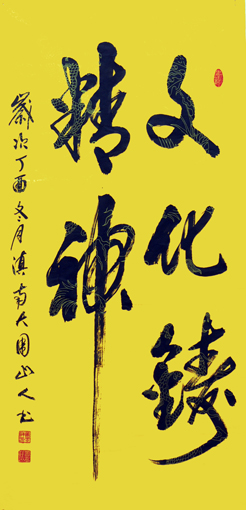 文化鑄
精神
歲次丁酉冬月滇南大园山人书